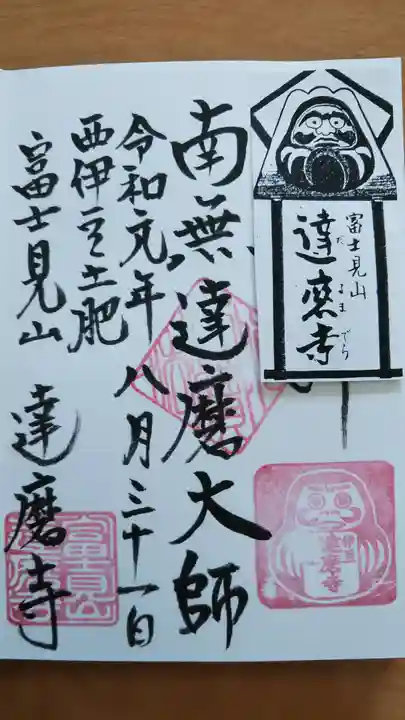 富士見山
だるまでら
達磨寺
南無達磨大師
令和元年八月三十一日
西伊豆土肥
富士見山 達磨寺
伊豆
達磨寺
富士見山